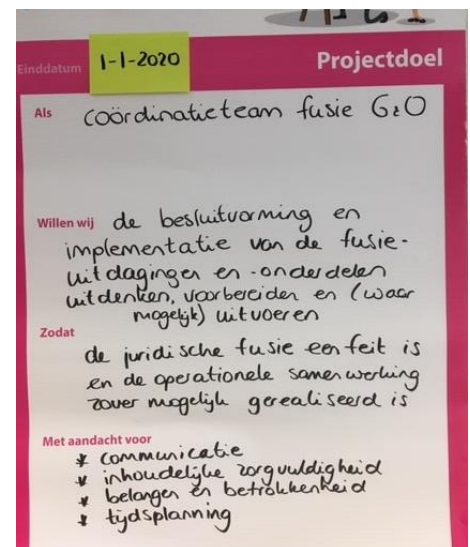 Einddatum 1-1-2020 Projectdoel
Als coördinatieteam fusie G&O
Willen wij de besluitvorming en
implementatie van de fusie-
uitdagingen en -onderdelen
uitdenken, voorbereiden en (waar
mogelijk) uitvoeren
Zodat
de juridische fusie een feit is
en de operationele samenwerking
zover mogelijk gerealiseerd is
Met aandacht voor
* communicatie
* inhoudelijke zorgvuldigheid
* belangen en betrokkenheid
* tijdsplanning